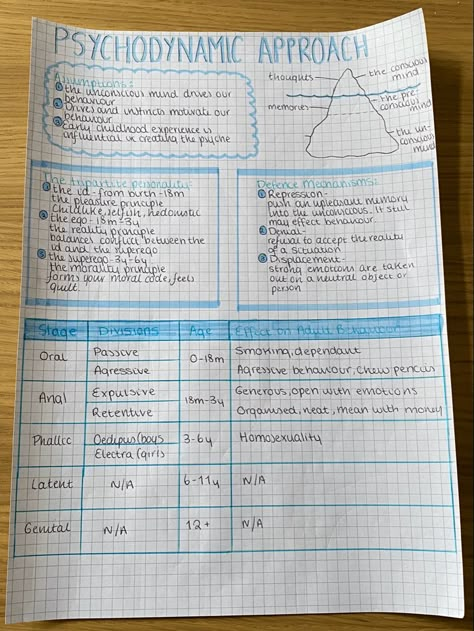 PSYCHODYNAMIC APPROACH
Assumptions:
① the unconscious mind drives our
behaviour
② Drives and instincts motivate our
behaviour
③ early childhood experience is
influential in creating the psyche
thoughts
the conscious
mind
memories
the pre-
conscious
mind
the un-
conscious
mind
The tripartite personality:
① the id - from birth - 18m
the pleasure principle
Childlike, selfish, hedonistic
② the ego - 18m-3y
the reality principle
balances conflict between the
id and the superego
③ the superego - 3y-6y
the morality principle
forms your moral code, feels
guilt.
Defence Mechanisms:
① Repression-
push an unpleasant memory
into the unconscious. It still
may effect behaviour.
② Denial-
refusal to accept the reality
of a situation
③ Displacement-
strong emotions are taken
out on a neutral object or
person
Stage Divisions Age Effect on Adult Behaviour
Oral Passive 0-18m Smoking, dependant
Agressive Agressive behaviour, chew pencils
Anal Expulsive 18m-3y Generous, open with emotions
Retentive Organised, neat, mean with money
Phallic Oedipus (boys 3-6y Homosexuality
Electra (girls
Latent N/A 6-11y N/A
Genital N/A 12+ N/A